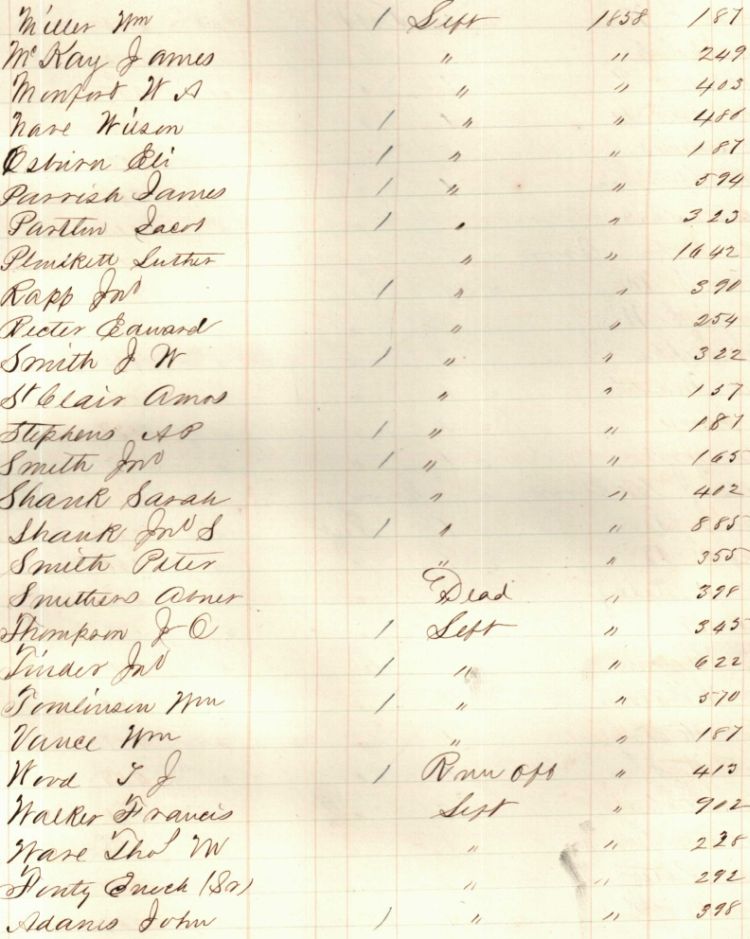 Miller Wm 1 Left 1858 187
McKay James " " 249
Monfort W A " " 403
Nave Wilson 1 " " 486
Osburn Eli 1 " " 187
Parrish James 1 " " 594
Parttin Jacob 1 " " 323
Plunkett Luther " " 1642
Rapp Jno 1 " " 390
Recter Edward " " 254
Smith J W 1 " " 322
St Clair Amos " " 157
Stephens A P 1 " " 187
Smith Jno 1 " " 165
Shank Sarah " " 402
Shank Jno S 1 " " 885
Smith Peter " " 355
Smithers Abner Dead " 398
Thompson J C 1 Left " 345
Tinder Jno 1 " " 622
Tomlinson Wm 1 " " 570
Vance Wm " " 187
Wood T J 1 Run off " 413
Walker Francis Left " 902
Ware Thos W " " 228
Fonty Enoch (Sr) " " 292
Adams John 1 " " 398